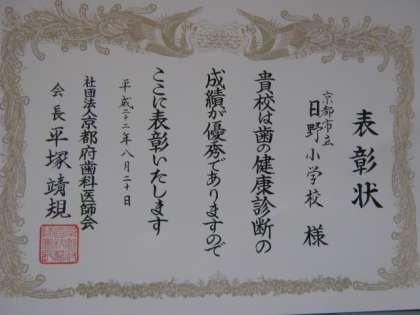 表彰状
京都市立
日野小学校 様
貴校は歯の健康診断の
成績が優秀でありますので
ここに表彰いたします
平成二十二年八月二十日
社団法人京都府歯科医師会
会長 平塚靖規